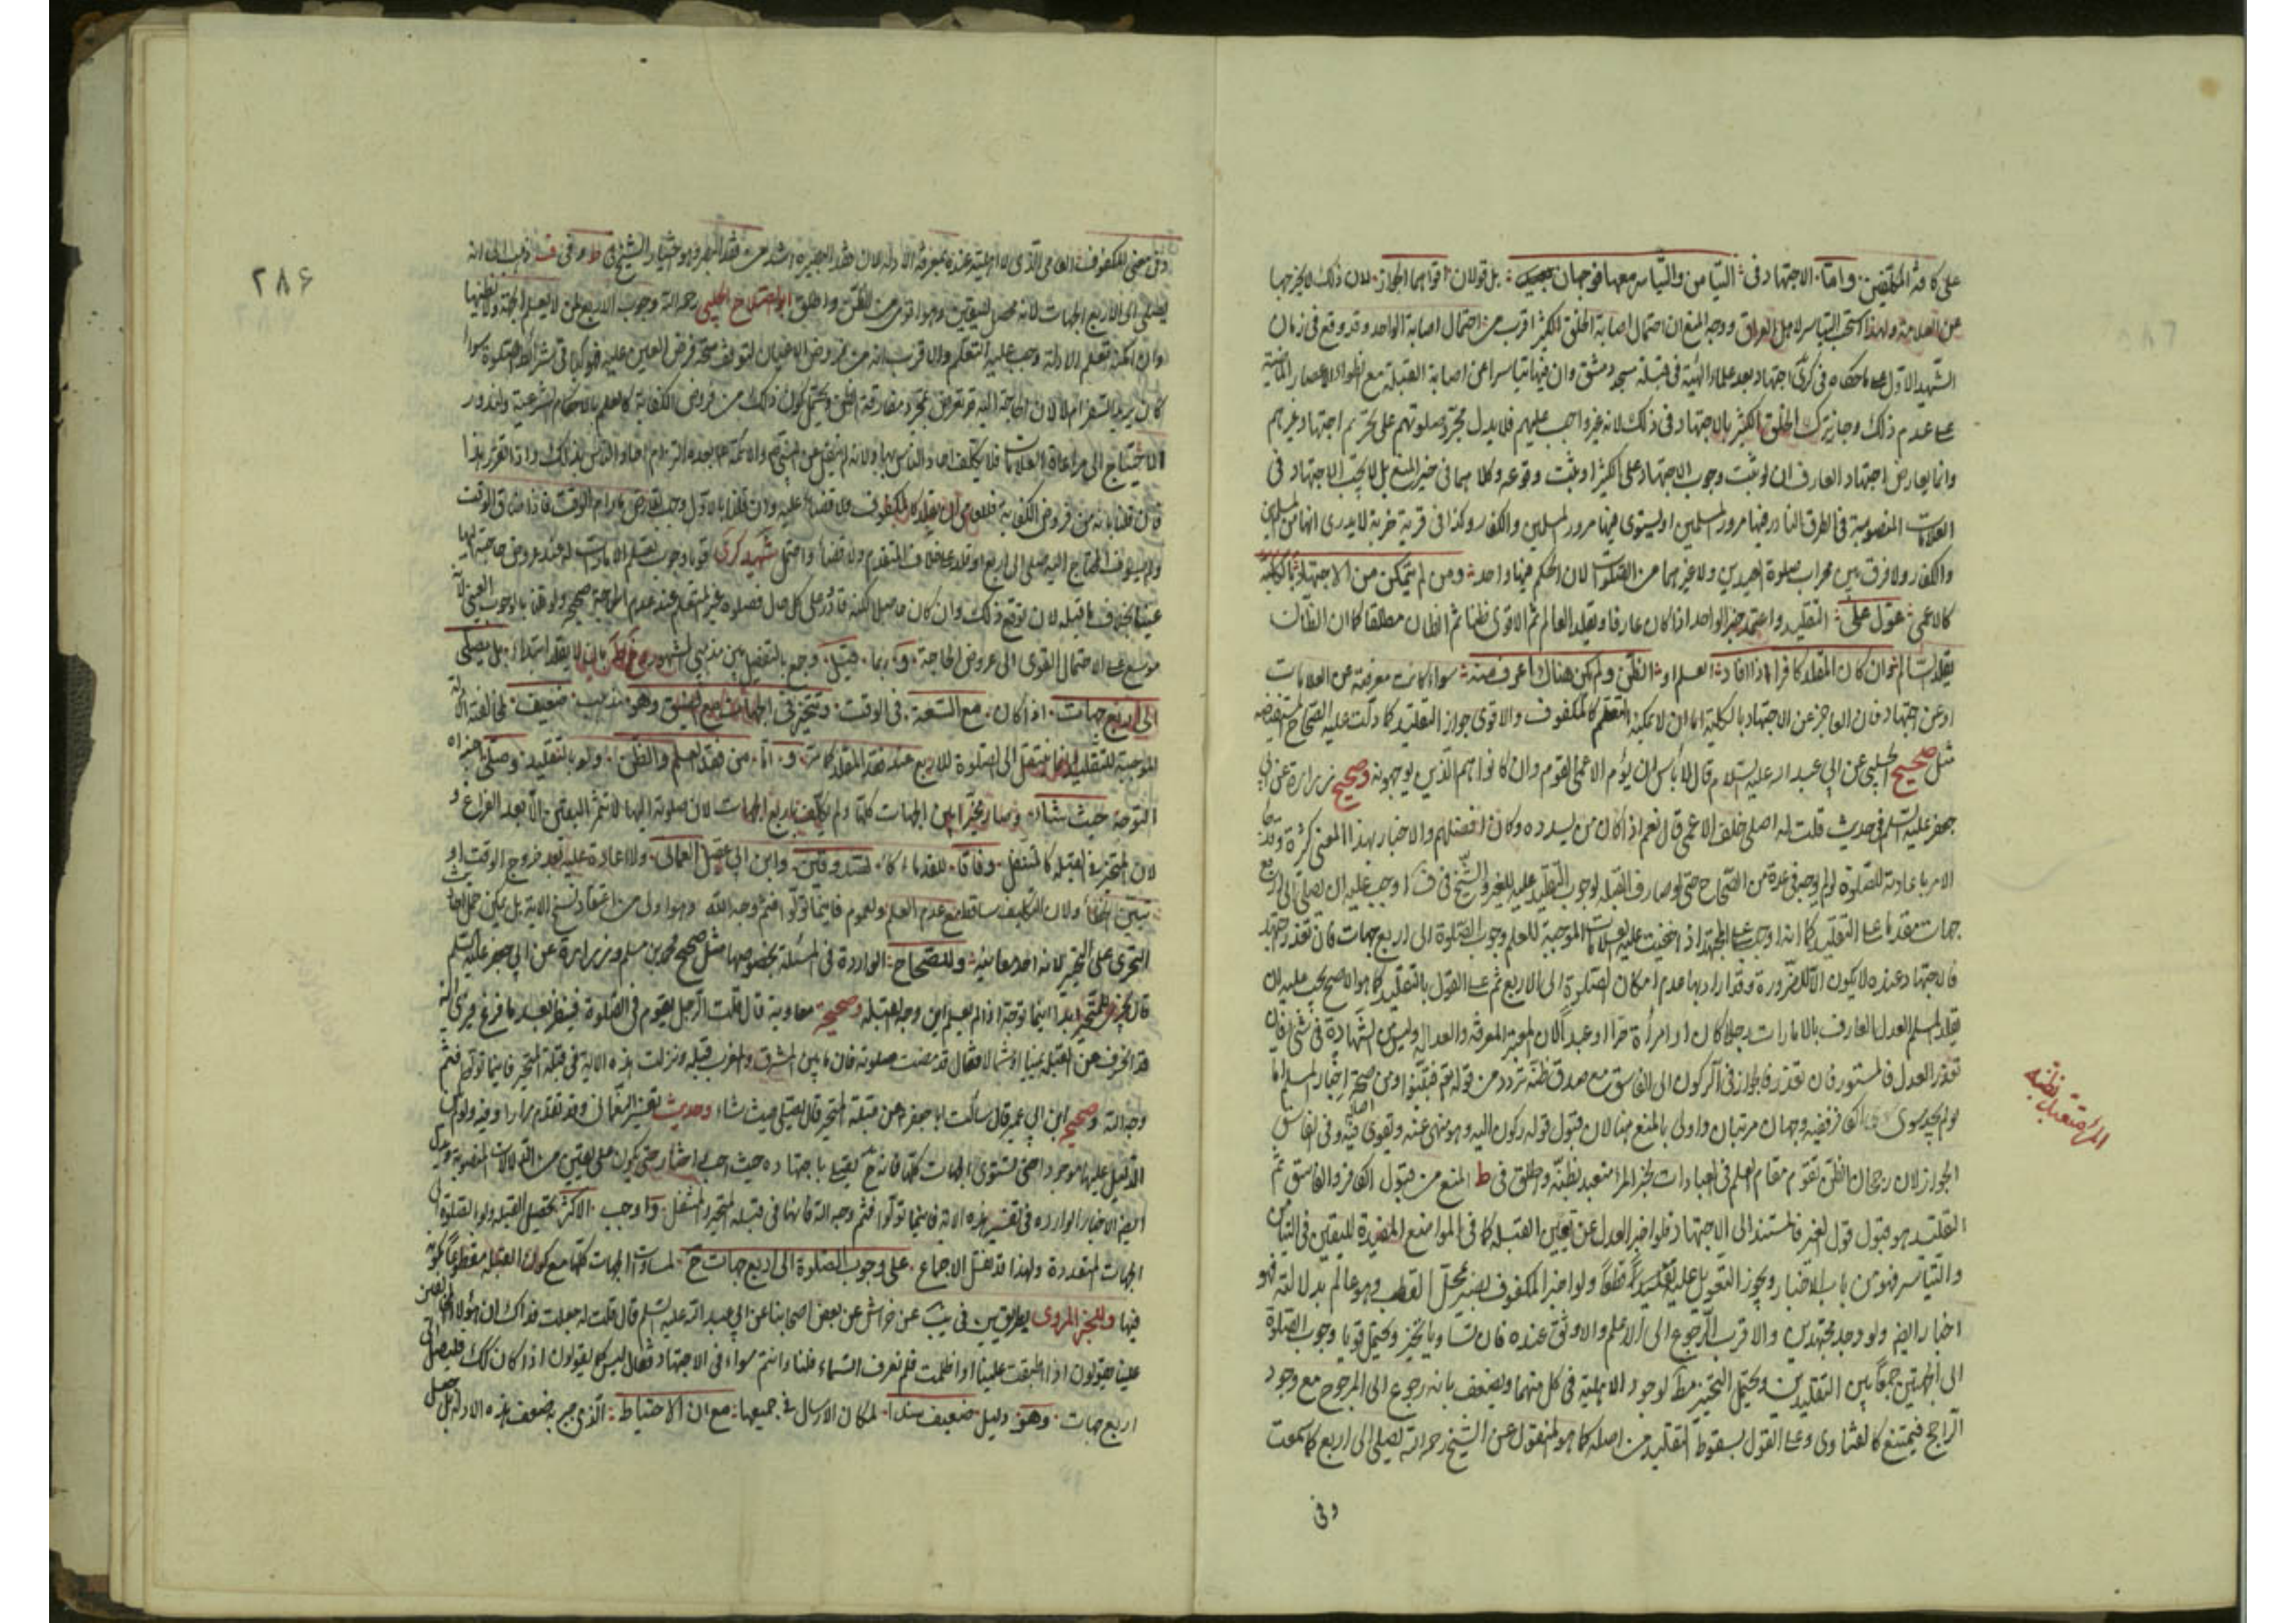 على كافة المكلفين وامّا الاجتهاد في التيامن والتياسر معها فوجهان بل قولان اقواهما الجواز لان ذلك لا يخرجها
عن العلامة ولهذا استحب التياسر لاهل العراق ووجه المنع ان احتمال اصابة الخلق الكثير اقرب من احتمال اصابة الواحد وقد وقع في زمان
الشهيد الاول على ما حكاه في كرى اجتهاد بعد علماء الهيئة في قبلة مسجد دمشق وان فيها تياسرا عن اصابة القبلة مع انطواء الاعصار الماضية
على عدم ذلك وجاز ترك الخلق الكثير بالاجتهاد في ذلك لانه غير واجب عليهم فلا يدل مجرد صلوتهم على تحريم اجتهاد غيرهم
وانما يعارض اجتهاد العارف ان لو ثبت وجوب الاجتهاد على الكثير او ثبت وقوعه وكلاهما في حيز المنع بل لا يجب الاجتهاد في
العلامات المنصوبة في الطرق النادر فيها مرور المسلمين او يستوى فيها مرور المسلمين والكفار وكذا في قرية خربة لا يدرى انها من المسلمين
والكفار ولا فرق بين محراب صلوة العيدين ولا غيرهما من الصلوات لان الحكم فيها واحد ومن لم يتمكن من الاجتهاد
كالاعمى عوّل على التقليد واعتمد خبر الواحد اذا كان عارفا ويقلد العالم ثم الاقوى ظنا ثم الظان مطلقا
وان كان المقلد كافرا اذا افاد العلم او الظن ولم يكن هناك اعرف منه سواء كانت معرفته عن العلامات
او عن اجتهاد فان العاجز عن الاجتهاد بالكلية اما ان لا يمكنه التعلم كالمكفوف والاقوى جواز التقليد كما دلت عليه الصحاح المستفيضة
مثل صحيح الحلبي عن ابي عبد الله عليه السلام قال لا بأس ان يؤم الاعمى القوم وان كانوا هم الذين يوجهونه وصحيح زرارة عن ابي
جعفر عليه السلم في حديث قلت له اصلي خلف الاعمى قال نعم اذا كان من يسدده وكان افضلهم والاخبار بهذا المعنى كثيرة
الامر باعادته للصلوة ولم يوجبه في عدة من الصحاح حتى لو صارف القبلة لوجوب التقليد عليه للغير والشيخ في ف اوجب عليه ان يصلي الى اربع
جهات مقدما على التقليد كما انه اوجب على المجتهد اذ خفيت عليه العلامات الموجبة للعلم وجوب الصلوة الى اربع جهات فان تعذر جهته
فالاجتهاد عنده لا يكون الا للضرورة وقد اراد بها عدم امكان الصلوة الى الاربع ثم على القول بالتقليد كما هو الاصح يجب عليه ان
يقلد المسلم العدل العارف بالامارات رجلا كان او امرأة حرا او عبدا لان المعتبر المعرفة والعدالة وليس الشهادة في شئ فان
تعذر العدل فالمستور فان تعذر فالجواز في الركون الى الفاسق مع صدق ظنه تردد من قوله تع فتبينوا ومن صحة اخبار المسلم اما
لو لم يجد سوى الكافر ففيه وجهان مرتبان واولى بالمنع هنا لان قبول قوله ركون اليه وهو منهى عنه ويقوى فيه وفي الفاسق
الجواز لان رجحان الظن يقوم مقام العلم في العبادات لخبر المرء متعبد بظنه واطلق في ط المنع من قبول الكافر والفاسق ثم
التقليد هو قبول قول الغير فالمستند الى الاجتهاد فلو اخبر العدل عن تعيين القبلة كما في المواضع المفيدة لليقين في التيامن
والتياسر فهو من باب الاخبار ويجوز التعويل عليه قطعا ولو اخبر المكفوف بصير بمحل القطب وهو عالم بدلالته فهو
اخبار ايضا ولو وجد مجتهدين والاقرب الرجوع الى الاعلم والاوثق عنده فان تساويا تخير ويحتمل قويا وجوب الصلوة
الى الجهتين جمعا بين التقليدين ويحتمل التخيير مط لوجود الاهلية في كل منهما ويضعف بانه رجوع الى المرجوح مع وجود
الراجح فيمتنع كالفتاوى وعلى القول بسقوط التقليد من اصله كما هو المنقول عن الشيخ رحمه الله يصلي الى اربع كما سمعت
وفي
المرء متعبد بظنه
٢٨۶
وفي معنى المكفوف العامي الذي لا اهلية عنده لمعرفة الادلة لان فقد البصيرة اشد من فقد البصر وهو اختيار الشيخ في ط وفي ف ذهب الى انه
يصلي الى الاربع الجهات لانه محصل لليقين وهو اقوى من الظن واطلق ابو الصلاح الحلبي رحمه الله وجوب الاربع لمن لا يعلم الجهة ولا يظنها
وان امكنه تعلم الادلة وجب عليه التعلم والاقرب انه من فروض الاعيان لتوقف صحة فرض العين عليه فهو كباقي شرائط الصلوة سواء
كان يريد السفر ام لا لان الحاجة اليه قد تعرض بمجرد مفارقة الوطن ويحتمل كون ذلك من فروض الكفاية كالعلم بالاحكام الشرعية ولندور
الاحتياج الى مراعاة العلامات فلا يكلف احاد الناس بها ولانه لم ينقل عن النبي ص والائمة بعده الزام احاد الناس بذلك واذا تقرر هذا
فان قلنا بانه من فروض الكفاية فللعامي ان يقلد كالمكفوف فلا قضاء عليه وان قلنا بالاول وجب التعلم ما دام الوقت فاذا ضاق الوقت
ولم يستوف المحتاج اليه صلى الى اربع او قلد على خلاف المتقدم ولا قضاء واحتمل شهيد كرى قويا وجوب تعلم الامارات له عند عروض حاجته اليها
عينا بخلاف ما قبله لان توقع ذلك وان كان حاصلا لكنه نادر على كل حال فصلوة غير المتعلم عند عدم الحاجة صحيحة ولو قلنا بالوجوب العيني لانه
موسع على الاحتمال القوى الى عروض الحاجة وربما قيل وجمع بالتفصيل بين مذهبي المشهور بان لا يقلد ابتداء بل يصلي
الى اربع جهات اذا كان مع السعة في الوقت ويتخير في الجهات مع الضيق وهو مذهب ضعيف لمخالفته الادلة
الموجبة للتقليد وانما ينتقل الى الصلوة للاربع عند فقد المقلد كما مر وامّا من فقد العلم والظن ولو بالتقليد وصلى
التوجه حيث شاء وصار مخيرا بين الجهات كلها ولم يكلف باربع الجهات لان صلوته اليها لا تثمر اليقين الا بعد الفراغ و
لان المتحير في القبلة كالمتنفل وفاقا للقدماء كالصدوقين وابن ابي عقيل العماني ولا اعادة عليه بعد خروج الوقت او
تبين الخطأ ولان التكليف ساقط مع عدم العلم ولعموم فاينما تولوا فثم وجه الله وهو اولى من اعتقاد نسخ الاية بل يمكن حمل
التحرى على التخيير لانه احد معانيه وللصحاح الواردة في المسئلة بخصوصها مثل صحيح محمد بن مسلم وزرارة عن ابي جعفر عليه السلم
قال يجزى المتحير ابدا اينما توجه اذا لم يعلم اين وجه القبلة وصحيح معاوية قال قلت الرجل يقوم في الصلوة فينظر بعد ما فرغ فيرى انه
قد انحرف عن القبلة يمينا او شمالا فقال قد مضت صلوته فان ما بين المشرق والمغرب قبلة ونزلت هذه الاية في قبلة المتحير فاينما تولوا فثم
وجه الله وصحيح ابن ابي عمير قال سألت ابا جعفر ع عن قبلة المتحير قال يصلي حيث شاء وحديث تفسير النعماني وقد تقدم مرارا وفيه
الدليل عليها موجودا حتى تستوى الجهات كلها فانه ح يصلي باجتهاده حيث احب واختار حتى يكون على يقين من الدلالات المنصوبة
ايضا الاخبار الواردة في تفسير هذه الاية فاينما تولوا فثم وجه الله فانها في قبلة المتحير والمتنفل واوجب الاكثر تحصيل القبلة ولو بالصلوة في
الجهات المتعددة ولهذا قد نقل الاجماع على وجوب الصلوة الى اربع جهات ح لمساوات الجهات كلها مع كون القبلة مقطوعا بكونه
فيها وللخبر المروى بطريقين في يب عن خراش عن بعض اصحابنا عن ابي عبد الله عليه السلم قال قلت له جعلت فداك ان هؤلاء المخالفين
علينا يقولون اذا اطبقت علينا او اظلمت فلم نعرف السماء فلنا وانتم سواء في الاجتهاد فقال ليس كما يقولون اذا كان كك فليصل الى
اربع جهات وهو دليل ضعيف سندا لمكان الارسال في جميعها مع ان الاحتياط الذي جبر به ضعف هذه الادلة بل جعل